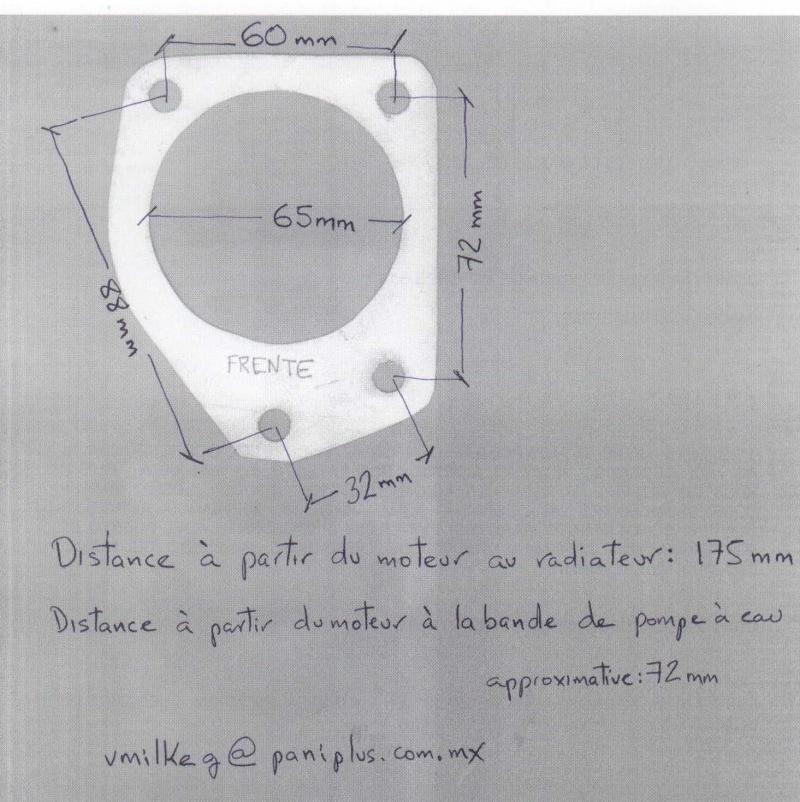 60mm
65mm
72mm
88mm
FRENTE
32mm
Distance à partir du moteur au radiateur: 175mm
Distance à partir du moteur à la bande de pompe à eau
approximative: 72mm
vmilkeg@paniplus.com.mx